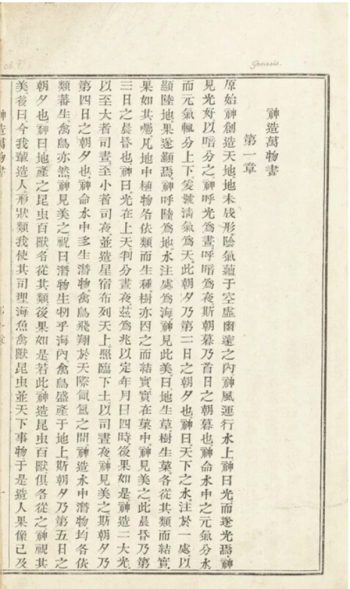 Genesis.
神造萬物書
第一章
原始神創造天地地未成形陰氣蘊于空虛之內神風運行水上神曰光而遂光焉神
見光好以暗分之神呼光爲晝呼暗爲夜斯朝暮乃首日之朝暮也神命水中之元氣分水
而元氣輒分上下爰號淸氣爲天此朝夕乃第二日之朝夕也神曰天下之水注於一處以
顯陸地果遂顯焉神呼陸爲地水注處爲海神見此美曰地生草樹生菓各從其類而結實
果如其囑凡地中植物各依類而生種樹亦因之而結實實在菓中神見美之此晨昏乃第
三日之晨昏也神曰光在上天判分晝夜茲爲兆以定年月日四時後果如是神造二大光
以至大者司晝至小者司夜並造星宿布列天上照臨下土以司晝夜神見美之斯朝夕乃
第四日之朝夕也神命水中多生潛物禽鳥飛翔於天際氤氳之間神造水中潛物均各依
類蕃生禽鳥亦然神見美之祝曰潛物生牣乎海內禽鳥盛產于地上斯朝夕乃第五日之
朝夕也神曰地產之昆虫百獸各從其類後果如是若此神造昆虫百獸俱各從之神視其
美者曰今我輩造人形狀類我使其司理海魚禽獸昆虫並天下事物于是造人果像己及
神造萬物書